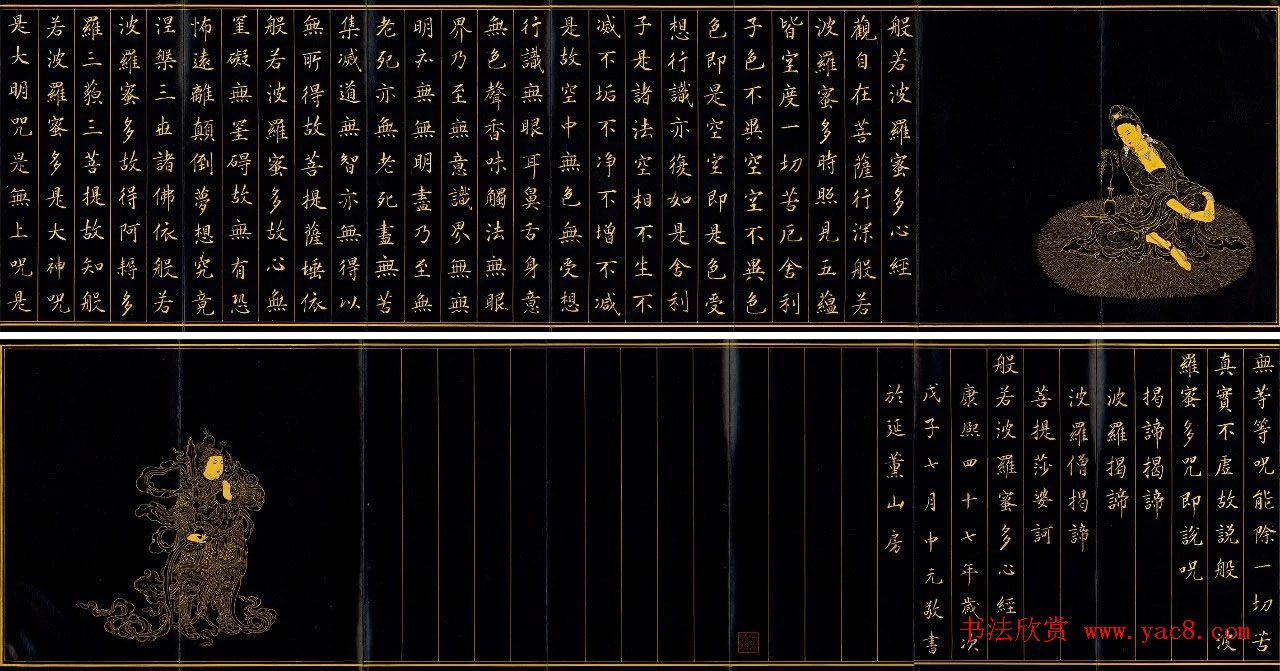 般若波羅蜜多心經
觀自在菩薩行深般若
波羅蜜多時照見五蘊
皆空度一切苦厄舍利
子色不異空空不異色
色即是空空即是色受
想行識亦復如是舍利
子是諸法空相不生不
滅不垢不净不增不減
是故空中無色無受想
行識無眼耳鼻舌身意
無色聲香味觸法無眼
界乃至無意識界無無
明亦無無明盡乃至無
老死亦無老死盡無苦
集滅道無智亦無得以
無所得故菩提薩埵依
般若波羅蜜多故心無
罣礙無罣碍故無有恐
怖遠離顛倒夢想究竟
涅槃三世諸佛依般若
波羅蜜多故得阿耨多
羅三藐三菩提故知般
若波羅蜜多是大神咒
是大明咒是無上咒是
無等等咒能除一切苦
真實不虛故説般 波
羅蜜多咒即說咒
揭諦揭諦
波羅揭諦
波羅僧揭諦
菩提莎婆訶
般若波羅蜜多心經
康熙四十七年歲次
戊子七月中元敬書
於延薰山房
书法欣赏 www.yac8.com